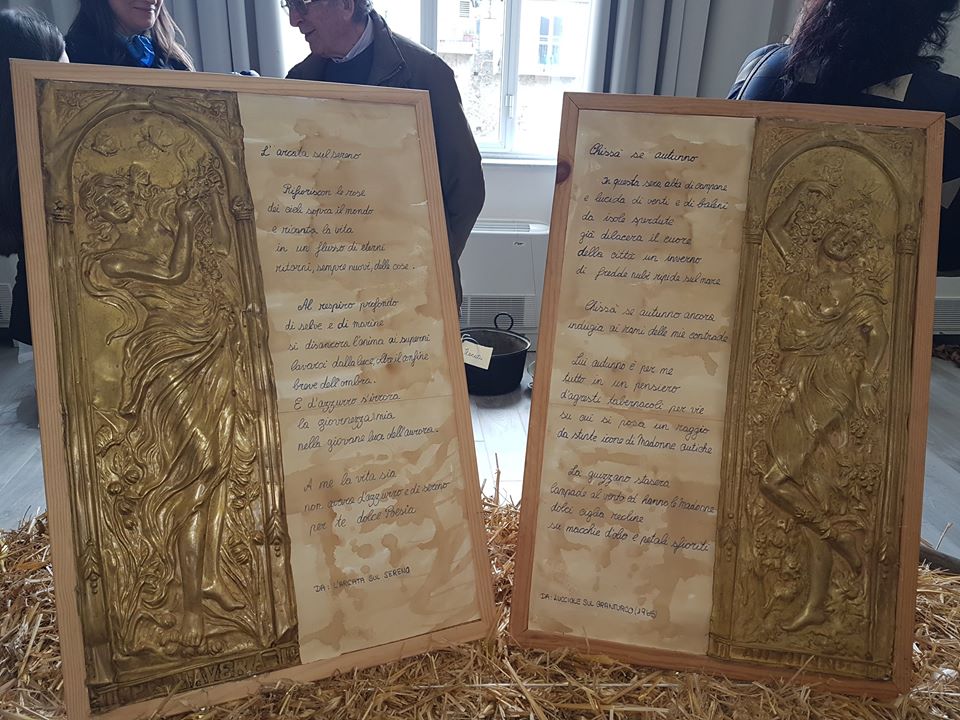 L'arcata sul sereno
Rifioriscon le rose
dei cieli sopra il mondo
e ricanta la vita
in un flusso di eterni
ritorni, sempre nuovi, delle cose.
Al respiro profondo
di selve e di marine
si disancora l'anima ai superni
lavacri dalla luce, oltre il confine
breve dell'ombra.
E d'azzurro s'irrora
la giovinezza mia
nella giovane luce dell'aurora.
A me la vita sia
non avara d'azzurro e di sereno
per te dolce Poesia
DA: L'ARCATA SUL SERENO
Chissà se autunno
In questa sera alta di campane
e lucida di venti e di baleni
da isole sperdute
già dilacera il cuore
della città un inverno
di fredde nubi ripide sul mare
Chissà se autunno ancora
indugia ai rami delle mie contrade
Lui autunno è per me
tutto in un pensiero
d'agresti tabernacoli per vie
su cui si posa un raggio
da stinte icone di Madonne antiche
La guizzano stasera
lampade al vento ed hanno le Madonne
dolci ciglia recline
su macchie d'olio e petali sfioriti
DA: LUCCIOLE SUL GRANTURCO (1965)